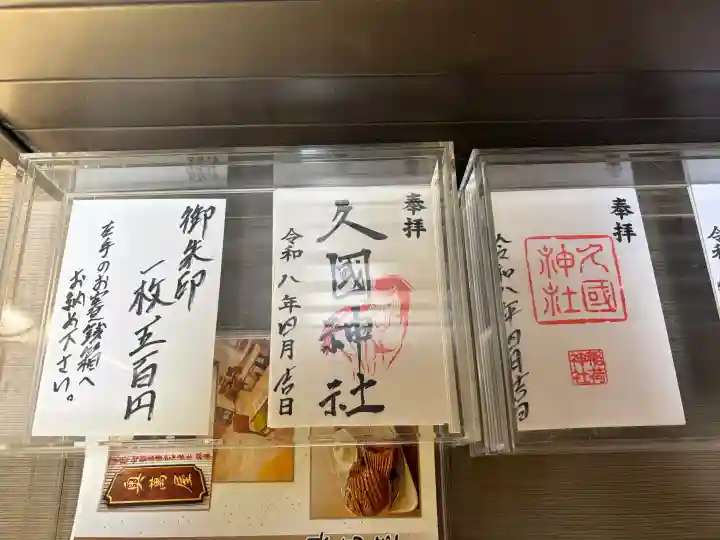 御朱印
一枚、五百円
左手のお賽銭箱へ
お納め下さい。
奉拝
久國神社
令和八年四月吉日
奉拝
久國
神社
令和八年四月吉日
稲荷
神社
令和
興萬屋